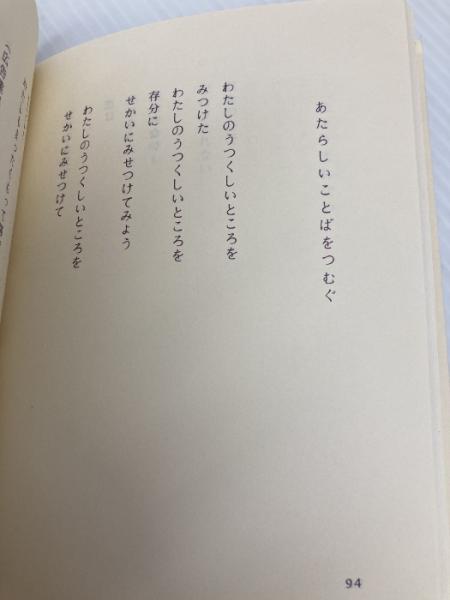 あたらしいことばをつむぐ
わたしのうつくしいところを
みつけた
わたしのうつくしいところを
存分に
せかいにみせつけてみよう
わたしのうつくしいところを
せかいにみせつけて
94